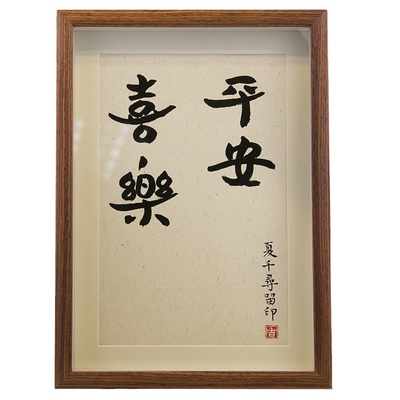 平安
喜樂
夏千尋留印